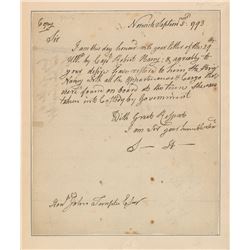 Copy
Norwich Septem 5: 1793
Sir
I am this day honor'd with your letter of the 29
Ulto. by Capt Robert Barry: & agreably to
your desire have restored to him the Brig
Nancy with all the Appurtenances & Cargo that
were found on board at the time She was
taken into Custody by Government
With Great Respect
I am Sir your humble
S— H—
Honl. John Temple Esqr